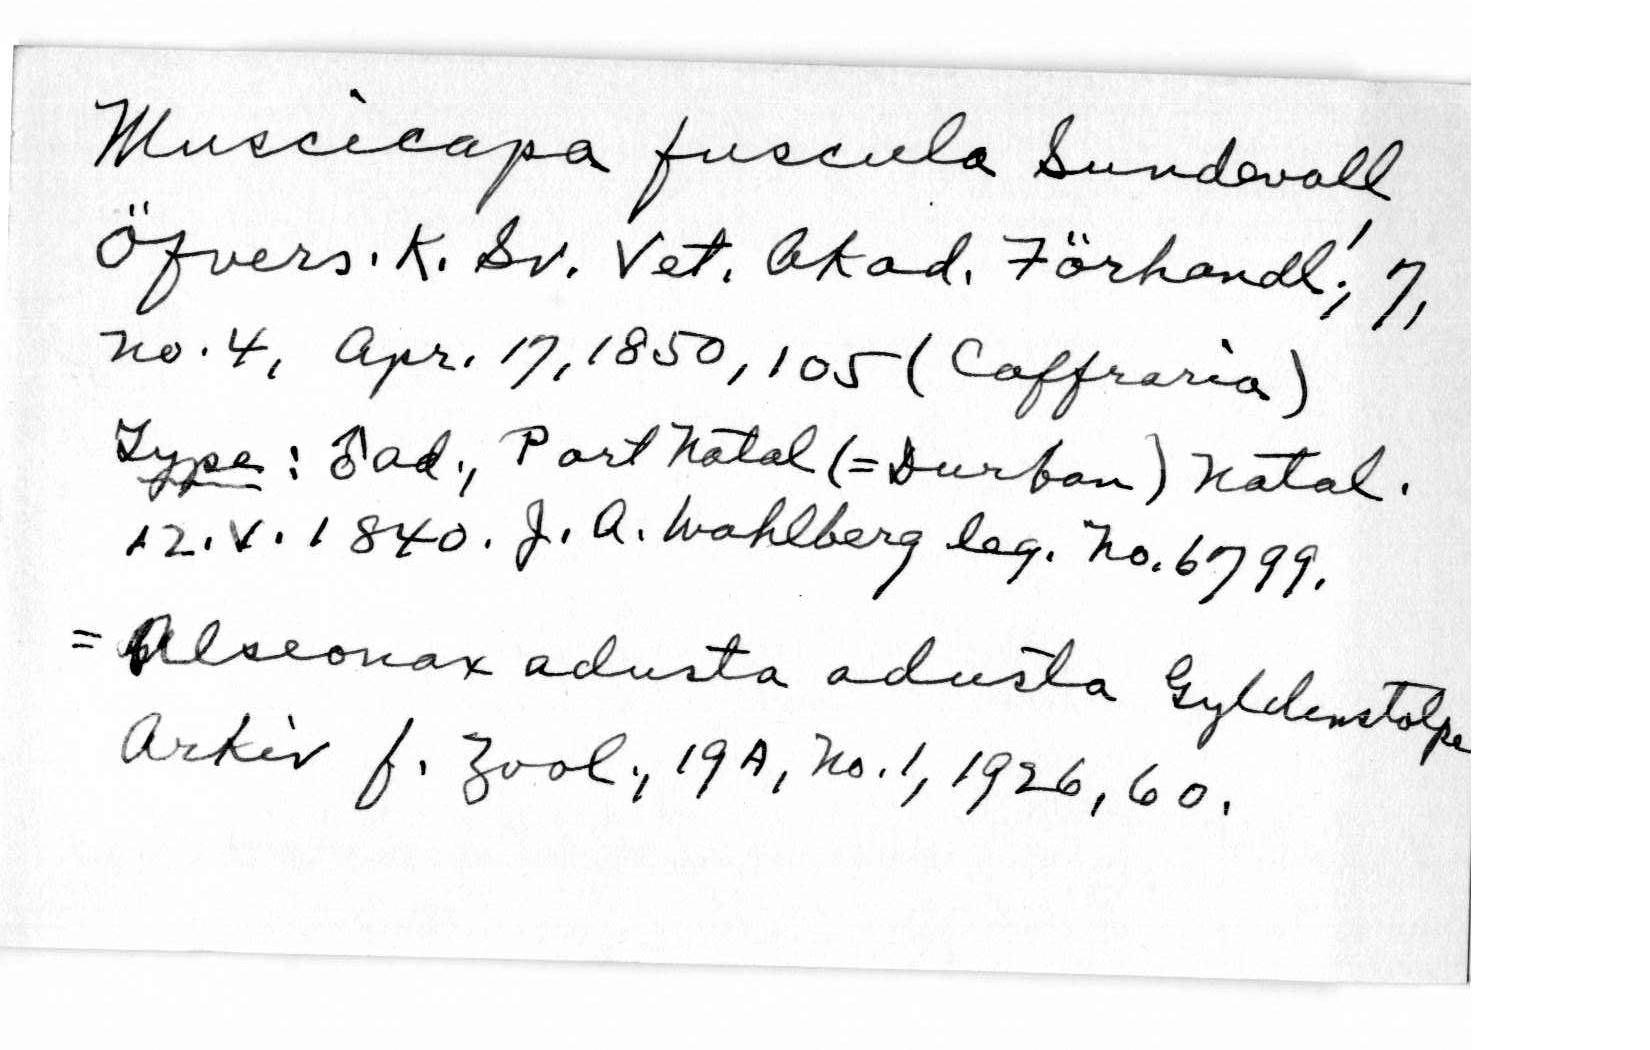 Muscicapa fuscula Sundevall
Öfvers. K. Sv. Vet. Akad. Förhandl., 7,
no. 4, Apr. 17, 1850, 105 (Caffraria)
Type: ♂ ad., Port Natal (= Durban) Natal.
12.V.1840. J. A. Wahlberg leg. No. 6799.
= Alseonax adusta adusta Gyldenstolpe
Arkiv f. Zool., 19A, No. 1, 1926, 60.